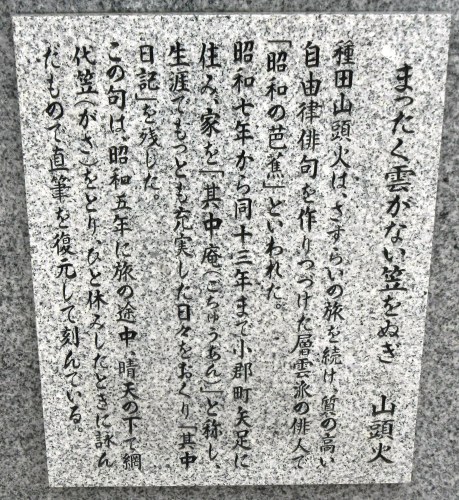 まったく雲がない笠をぬぎ 山頭火
種田山頭火は、さすらいの旅を続け、質の高い
自由律俳句を作りつづけた層雲派の俳人で
「昭和の芭蕉」といわれた。
昭和十年から同十三年まで小郡町矢足に
住み、家を「其中庵(ごちゅうあん)」と称し、
生涯でもっとも充実した日々をおくり「其中
日記」を残した。
この句は、昭和五年に旅の途中、晴天の下で網
代笠(がさ)をとり、ひと休みしたときに詠ん
だもので直筆を復元して刻んでいる。